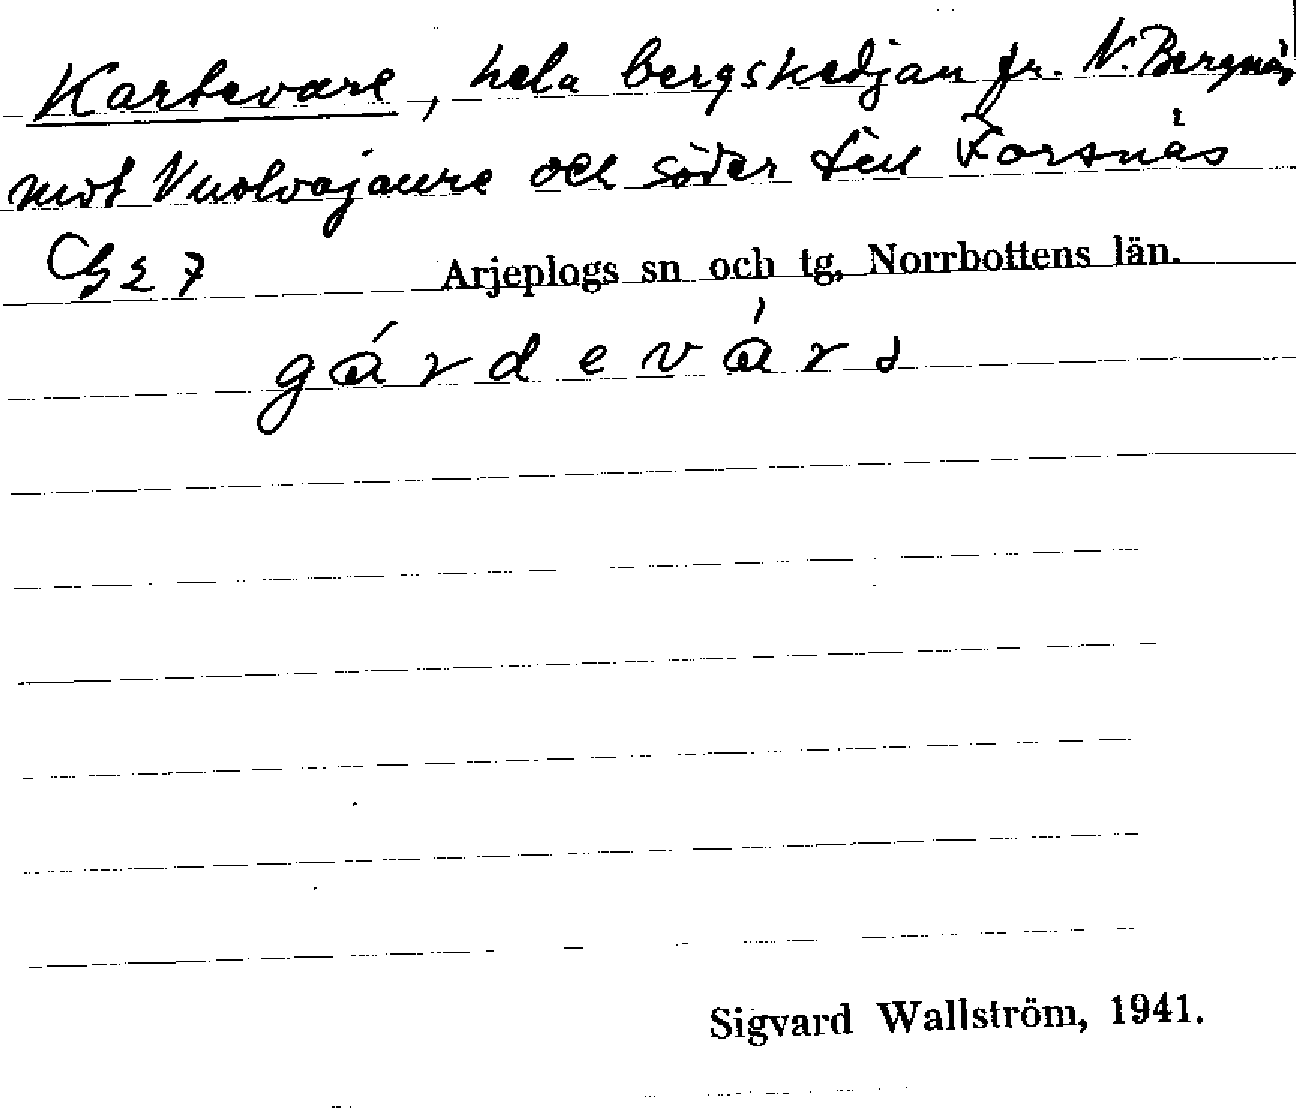 Kartevare, hela bergskedjan fr. N. Bergnäs
mot Vuolvojaure och söder till Forsnäs
Gg 7 Arjeplogs sn och tg, Norrbottens län.
gárdevárɘ
Sigvard Wallström, 1941.